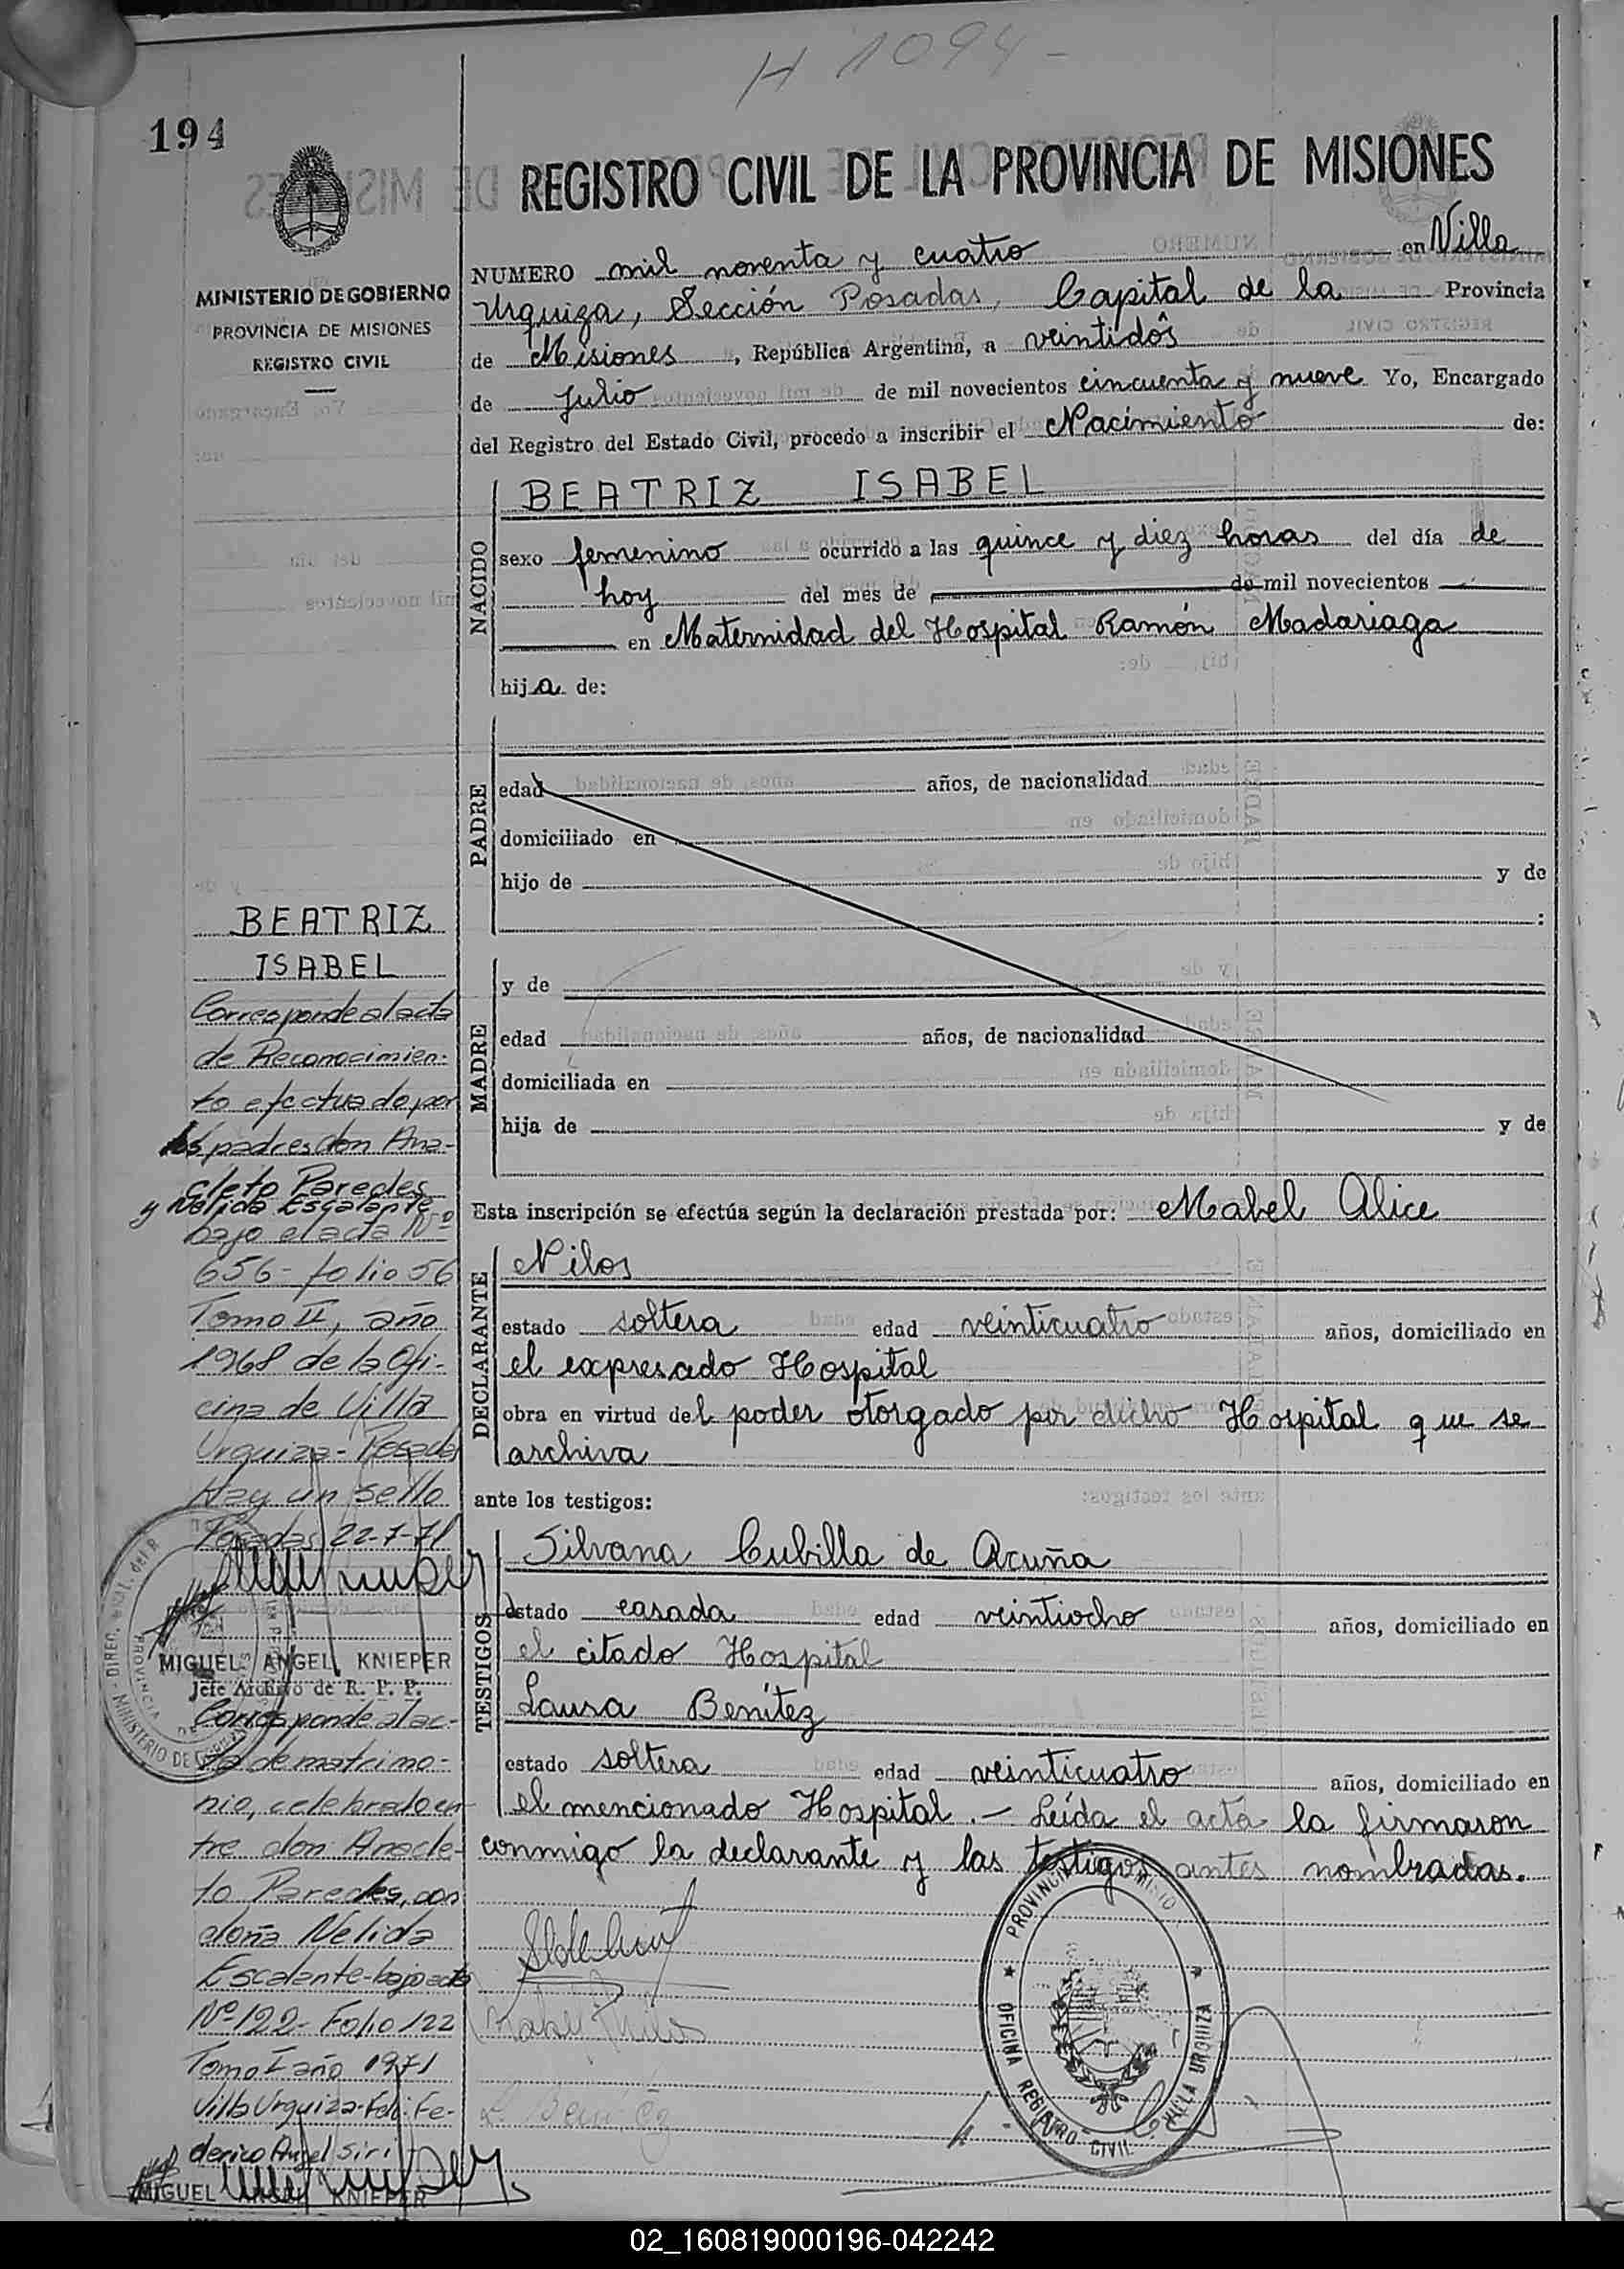 H 1094-
194
REGISTRO CIVIL DE LA PROVINCIA DE MISIONES
MINISTERIO DE GOBIERNO
PROVINCIA DE MISIONES
REGISTRO CIVIL
NUMERO mil noventa y cuatro en Villa
Urquiza, Sección Posadas, Capital de la Provincia
de Misiones, República Argentina, a veintidós
de Julio de mil novecientos cincuenta y nueve Yo, Encargado
del Registro del Estado Civil, procedo a inscribir el Nacimiento de:
NACIDO
BEATRIZ ISABEL
sexo femenino ocurrido a las quince y diez horas del día de
hoy del mes de de mil novecientos
en Maternidad del Hospital Ramón Madariaga
hija de:
PADRE
edad años, de nacionalidad
domiciliado en
hijo de y de
:
MADRE
y de
edad años, de nacionalidad
domiciliada en
hija de y de
Esta inscripción se efectúa según la declaración prestada por: Mabel Alice
DECLARANTE
Nilos
estado soltera edad veinticuatro años, domiciliado en
el expresado Hospital
obra en virtud del poder otorgado por dicho Hospital que se
archiva
ante los testigos:
TESTIGOS
Silvana Cubilla de Acuña
estado casada edad veintiocho años, domiciliado en
el citado Hospital
Laura Benítez
estado soltera edad veinticuatro años, domiciliado en
el mencionado Hospital.- Leída el acta la firmaron
conmigo la declarante y las testigos antes nombradas.
L. Benítez
PROVINCIA MISIO
OFICINA REGISTRO CIVIL VILLA URQUIZA
BEATRIZ
ISABEL
Corresponde al acta
de Reconocimien-
to efectuado por
los padres don Ana-
cleto Paredes
y Nelida Escalante
bajo el acta Nº
656- folio 56
Tomo II, año
1968 de la Ofi-
cina de Villa
Urquiza- Posadas
Hay un sello
Posadas 22-7-71
MIGUEL ANGEL KNIEPER
Jefe Archivo de R. P. P.
Corresponde al ac-
ta de matrimo-
nio, celebrado en-
tre don Anacle-
to Paredes, con
doña Nelida
Escalante-bajo acta
Nº 122- Folio 122
Tomo I año 1971
Villa Urquiza-Fdo: Fe-
derico Angel Siri
MIGUEL ANGEL KNIEPER
02_160819000196-042242